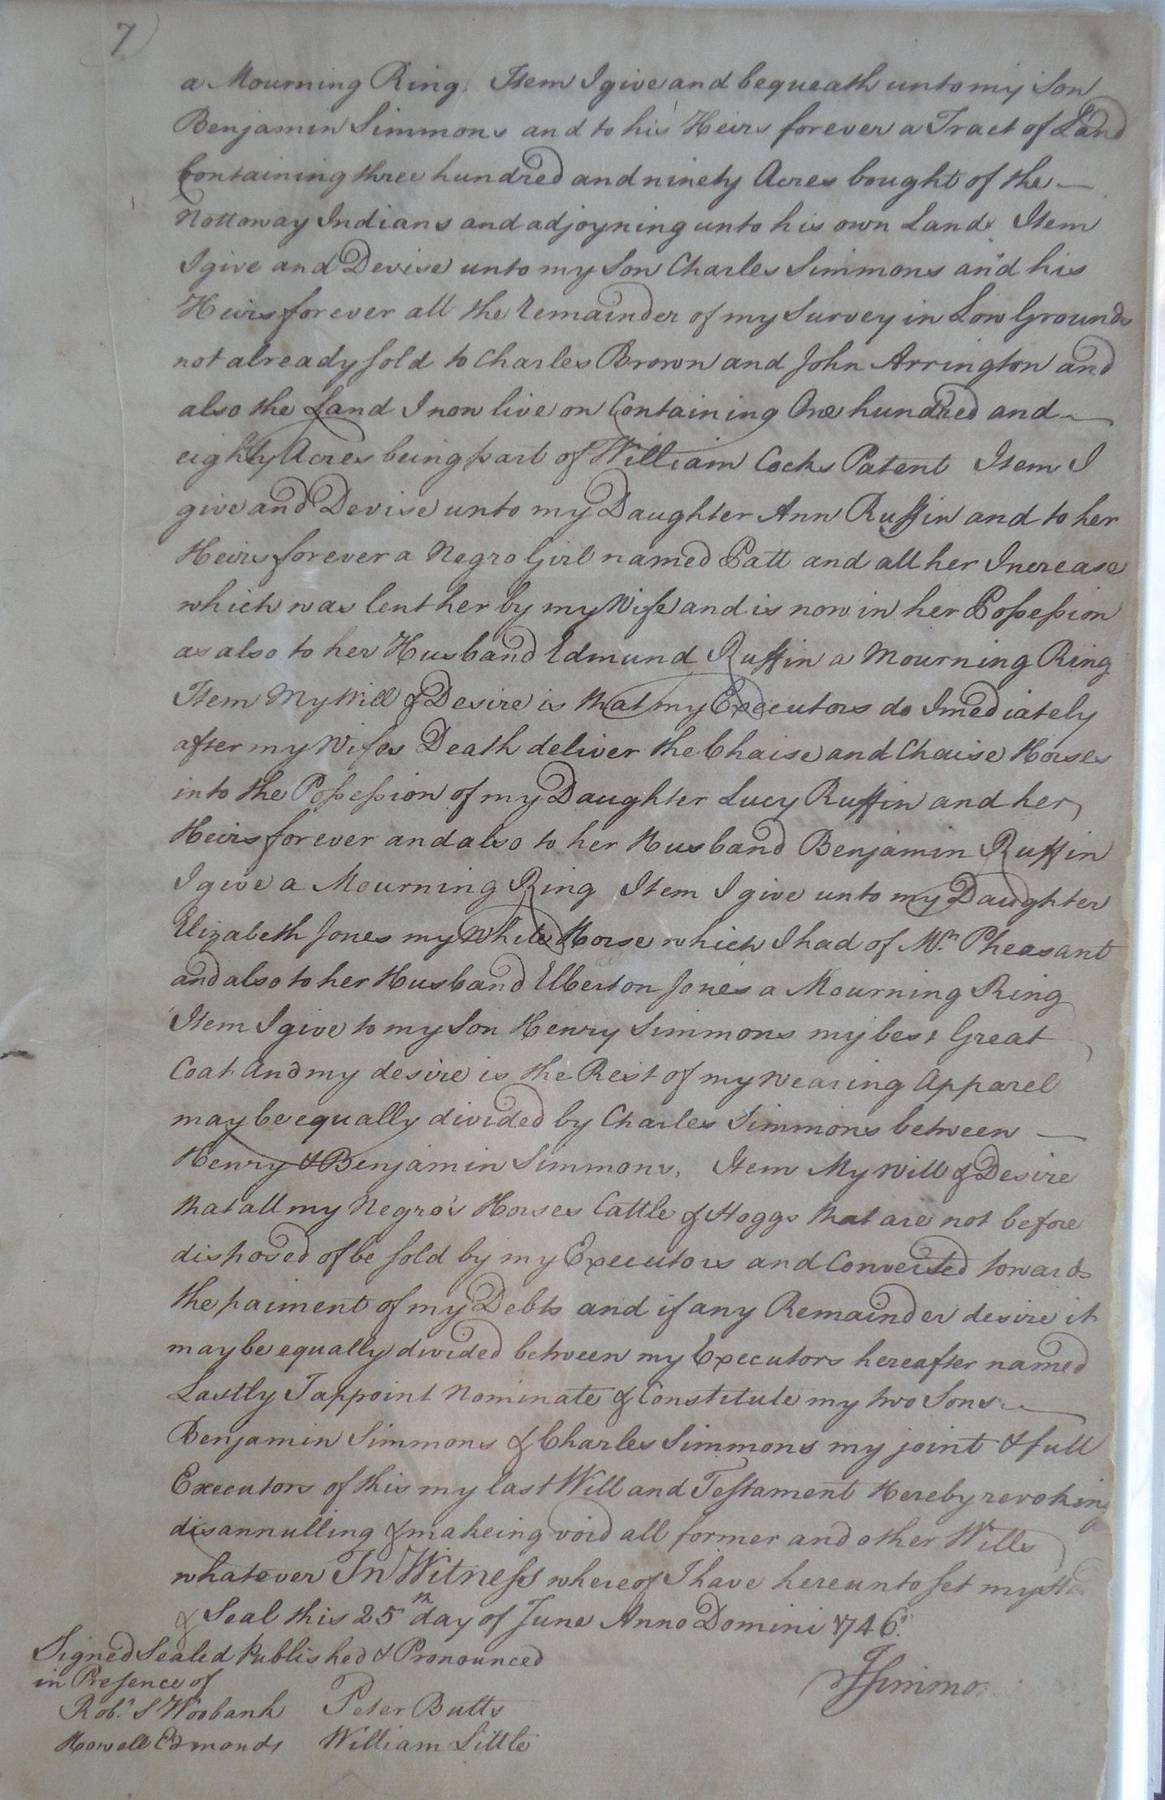 7
a Mourning Ring. Item I give and bequeath unto my Son
Benjamin Simmons and to his Heirs forever a Tract of Land
Containing three hundred and ninety Acres bought of the
Nottoway Indians and adjoyning unto his own Land. Item
I give and Devise unto my Son Charles Simmons and his
Heirs forever all the remainder of my Survey in Low Grounds
not already sold to Charles Brown and John Arrington and
also the Land I now live on Containing One hundred and
eighty Acres being part of William Cocks Patent Item I
give and Devise unto my Daughter Ann Ruffin and to her
Heirs forever a Negro Girl named Patt and all her Increase
which was lent her by my Wife and is now in her Possession
as also to her Husband Edmund Ruffin a Mourning Ring
Item My Will & Desire is that my Executors do Imediately
after my Wifes Death deliver the Chaise and Chaise Horses
into the Possession of my Daughter Lucy Ruffin and her
Heirs forever and also to her Husband Benjamin Ruffin
I give a Mourning Ring Item I give unto my Daughter
Elizabeth Jones my White Horse which I had of Mr. Pheasant
and also to her Husband Elberton Jones a Mourning Ring
Item I give to my Son Henry Simmons my best Great
Coat And my desire is the Rest of my wearing Apparel
may be equally divided by Charles Simmons between
Henry & Benjamin Simmons. Item My Will & Desire
that all my Negro's Horses Cattle & Hoggs that are not before
disposed of be sold by my Executors and Converted towards
the paiment of my Debts and if any Remainder desire it
may be equally divided between my Executors hereafter named
Lastly I appoint Nominate & Constitute my two Sons
Benjamin Simmons & Charles Simmons my joint & full
Executors of this my last Will and Testament Hereby revoking
disannulling & makeing void all former and other Wills
whatever In Witness whereof I have hereunto set my
& Seal this 25th day of June Anno Domini 1746.
Signed Sealed Published & Pronounced
in Presence of
Robt. S Woobank Peter Butts
Howell Edmonds William Little
Simmo